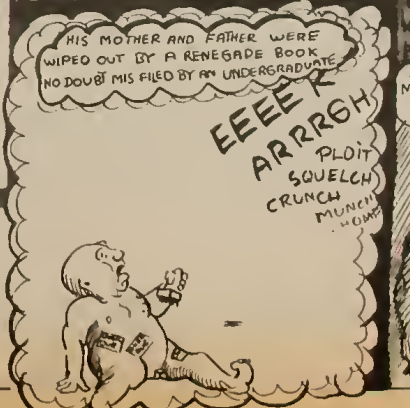 HIS MOTHER AND FATHER WERE
WIPED OUT BY A RENEGADE BOOK
NO DOUBT MIS FILED BY AN UNDERGRADUATE
EEEEK
ARRRGH
PLOIT
SQUELCH
CRUNCH
MUNCH